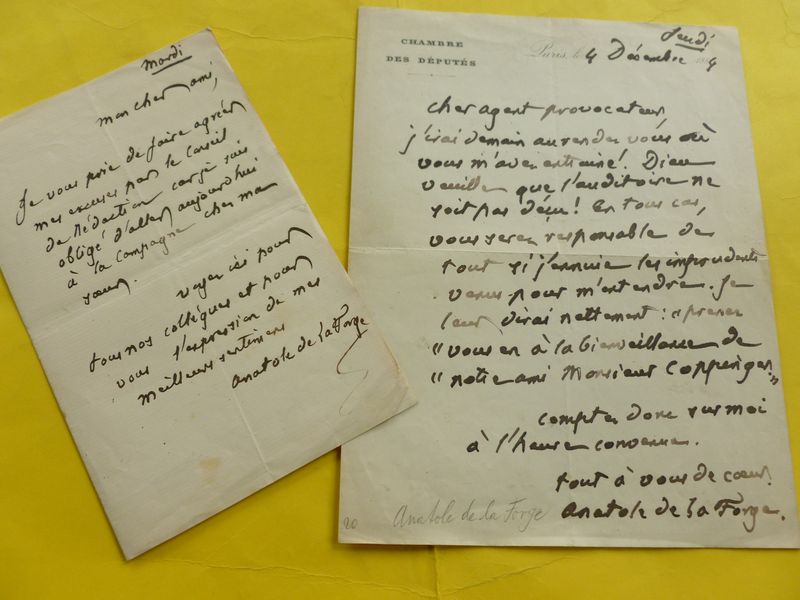 Mardi
mon cher ami,
Je vous prie de faire agréer
mes excuses par le Conseil
de Rédaction car je suis
obligé d'aller aujourd'hui
à la campagne chez ma
sœur.
pour
tous nos collègues et pour
vous l'expression de mes
meilleurs sentiments
anatole de la Forge
CHAMBRE
DES DÉPUTÉS
Jeudi
Paris, le 4 Désembre 4
cher agent provocateur
j'irai demain au rendez vous où
vous m'avez entrainé! Dieu
veuille que l'auditoire ne
soit pas déçu! En tous cas,
vous serez responsable de
tout si j'ennuie les imprudents
venus pour m'entendre. Je
leur dirai nettement: "prenez
"vous en à la bienveillance de
"notre ami Monsieur
comptez donc sur moi
à l'heure convenue.
tout à vous de cœur.
anatole de la Forge.
20 Anatole de la Forge